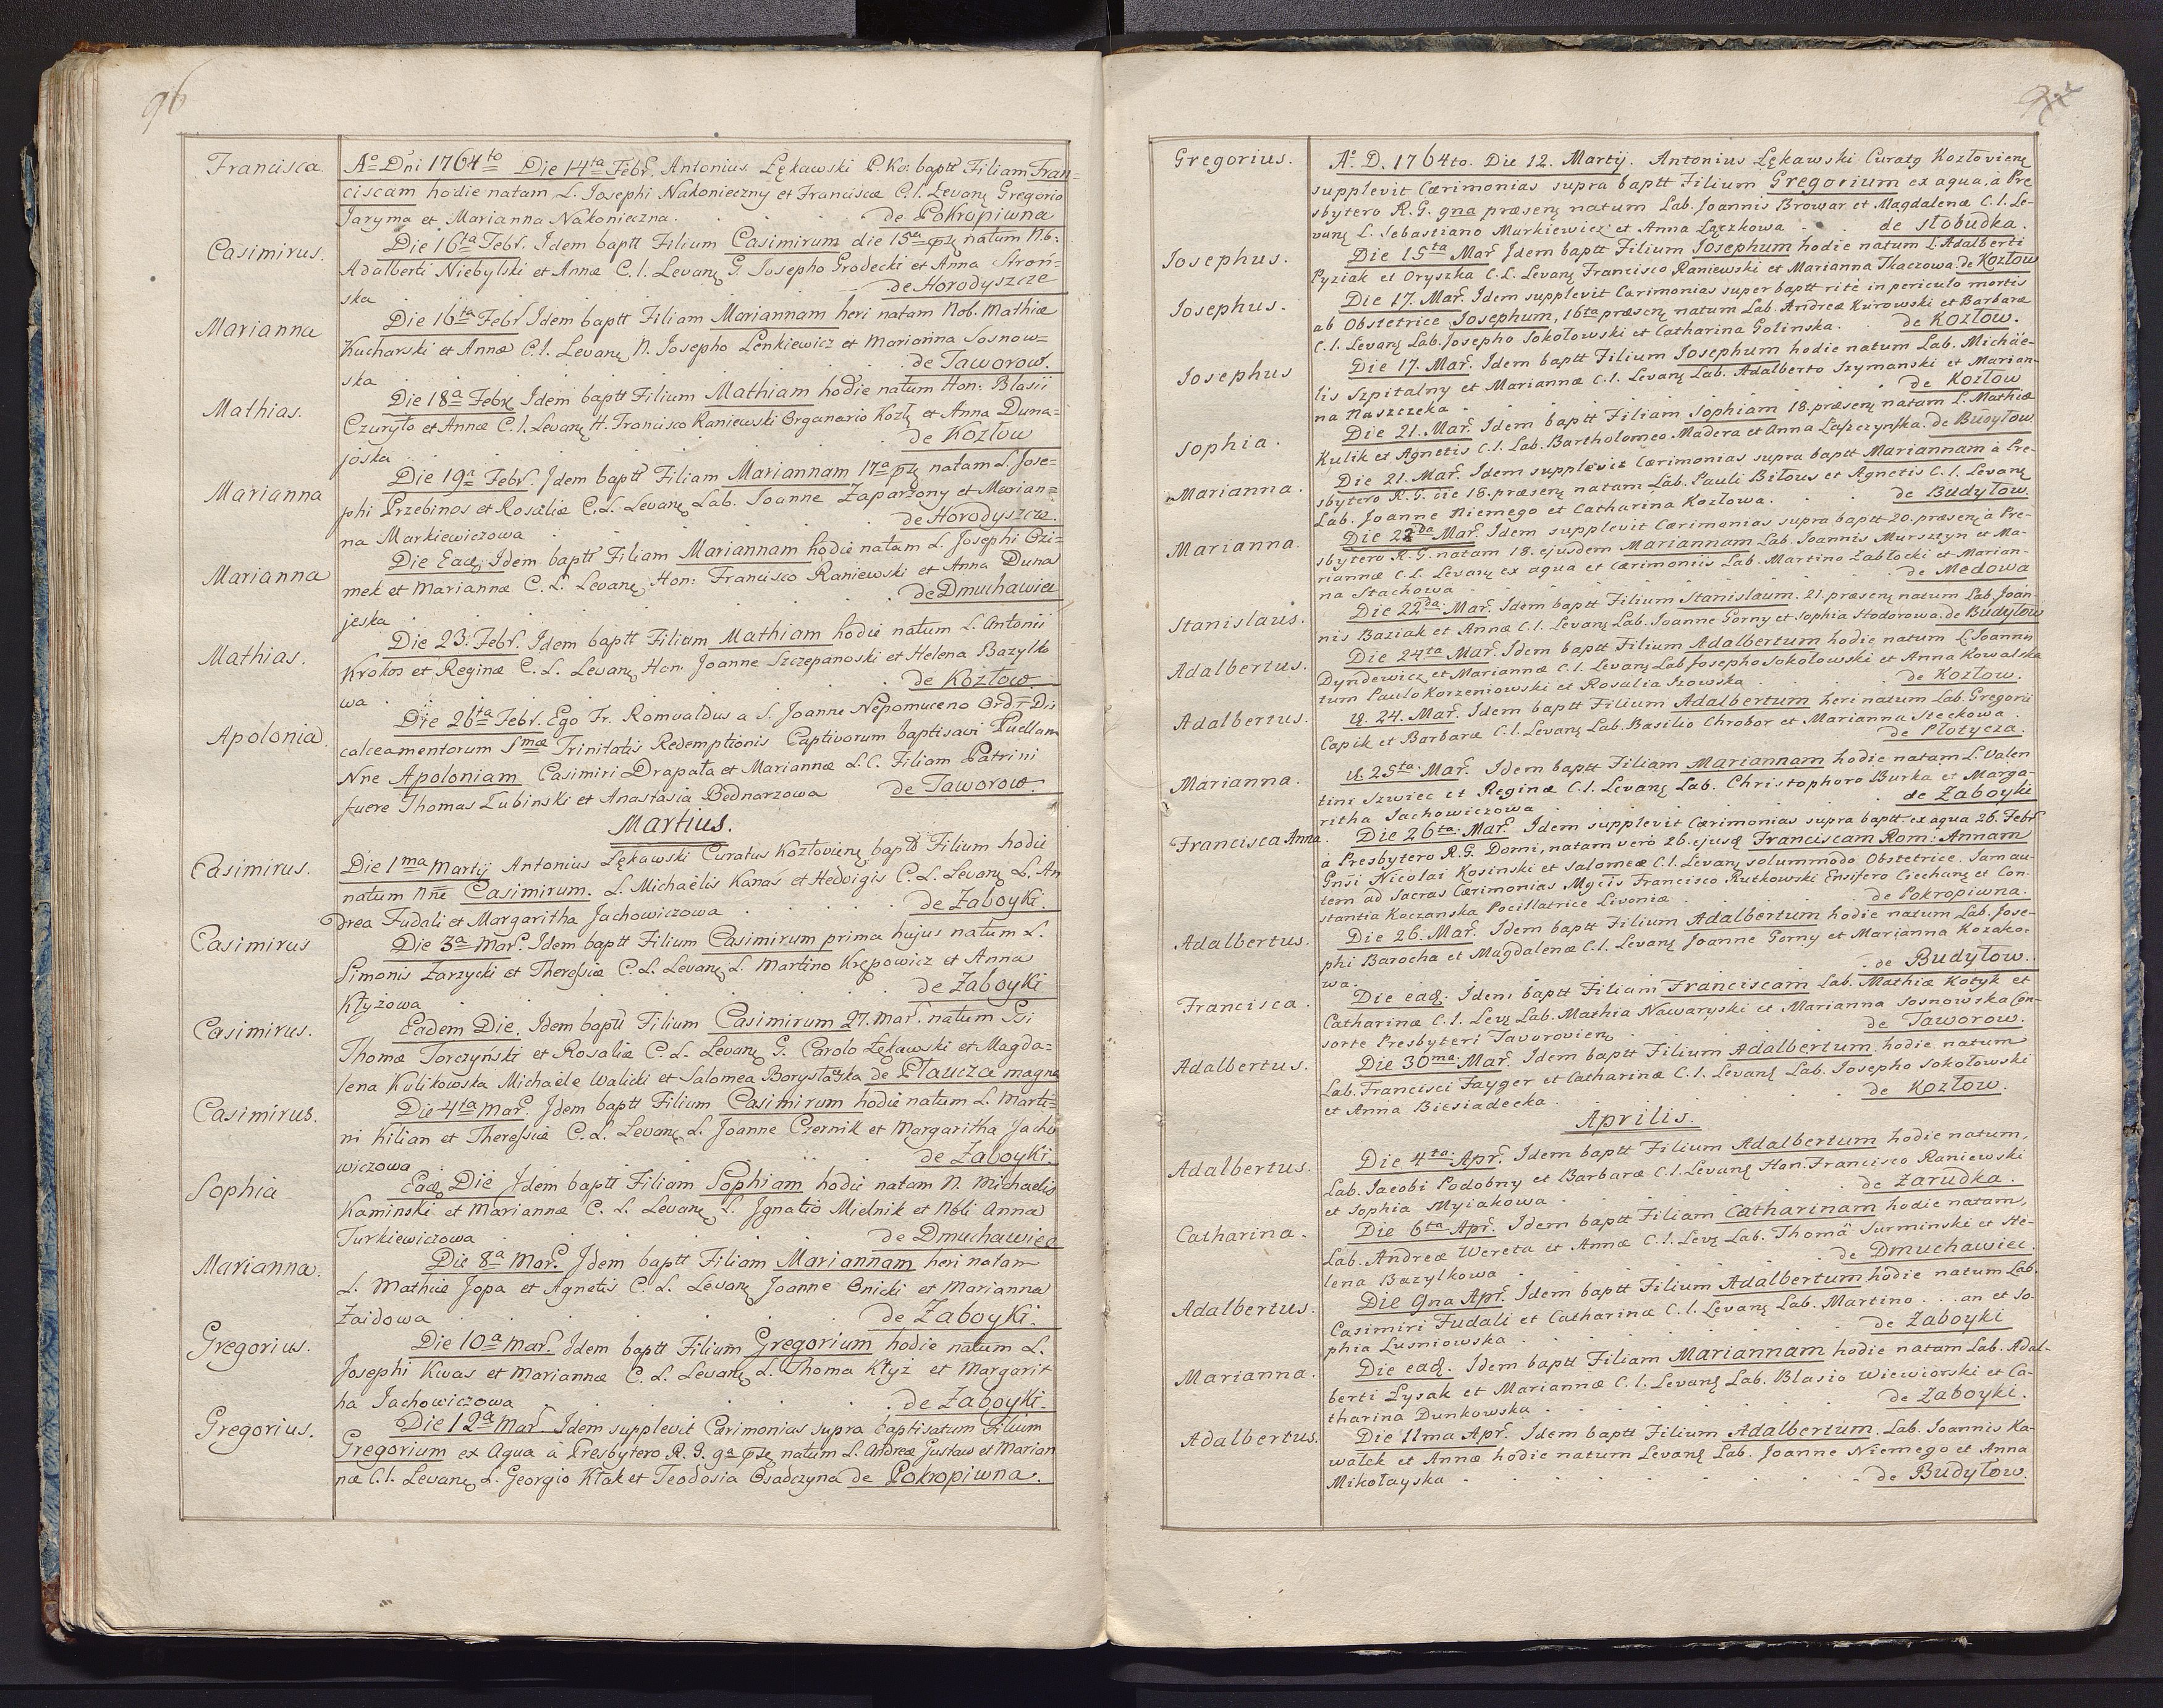 96
Francisca.
Aº Dni 1764to Die 14ta Febr. Antonius Łękawski C. Ko: baptt Filiam Fran-
ciscam hodie natam L. Josephi Nakonieczny et Franciscæ C. l. Levanŧ Gregorio
Jaryma et Marianna Nakonieczna. de Pokropiwna
Casimirus.
Die 16ta Febr. Idem baptt Filium Casimirum die 15ta natum Nb:
Adalberti Niebylski et Annæ C. l. Levanŧ G. Josepho Grodecki et Anna Stroń-
ska de Horodyszcze
Marianna
Die 16ta Febr. Idem baptt Filiam Mariannam heri natam Nob. Mathiæ
Kucharski et Annæ C. l. Levanŧ N. Josepho Lenkiewicz et Marianna Sosnow-
ska de Taworow.
Mathias.
Die 18a Febr Idem baptt Filium Mathiam hodie natum Hon: Blasii
Czuryło et Annæ C. l. Levanŧ H. Francisco Raniewski Organario Kozł et Anna Duna-
joska de Kozłow
Marianna
Die 19a Febr. Idem baptt Filiam Mariannam 17a natam L. Jose-
phi Przebinos et Rosaliæ C. L. Levanŧ Lab. Joanne Zaparzony et Marian-
na Markiewiczowa de Horodyszcze.
Marianna
Die Eaq. Idem baptt Filiam Mariannam hodie natam L. Josephi Czi-
mek et Mariannæ C. L. Levanŧ Hon: Francisco Raniewski et Anna Duna
jeska de Dmuchawiec
Mathias.
Die 23. Febr. Idem baptt Filium Mathiam hodie natum L. Antonii
Krokos et Reginæ C. L. Levanŧ Hon. Joanne Szczepanoski et Helena Bazylko
wa de Kozłow
Apolonia.
Die 26ta Febr. Ego Fr. Romualdus a S. Joanne Nepomuceno Ord: Dis
calceamentorum Smæ Trinitatis Redemptionis Captivorum baptisavi Puellam
Nne Apoloniam Casimiri Drapała et Mariannæ L. C. Filiam Patrini
fuere Thomas Lubinski et Anastasia Bednarzowa de Taworow.
Martius.
Casimirus.
Die 1ma Martij Antonius Łękawski Curatus Kozłovienŧ baptt Filium hodie
natum Nne Casimirum. L. Michaëlis Kanaś et Hedvigis C. L. Levanŧ L. An
drea Fudali et Margaritha Jachowiczowa de Zaboyki.
Casimirus
Die 3a Mar. Idem baptt Filium Casimirum prima hujus natum L.
Simonis Zarzycki et Theresiæ C. L. Levanŧ L. Martino Krepowicz et Anna
Kłyżowa de Zaboyki
Casimirus.
Eadem Die. Idem baptt Filium Casimirum 27. Mar. natum Gsi
Thomæ Torczyński et Rosaliæ C. L. Levanŧ G. Carolo Łękawski et Magda-
lena Kulikowska Michaële Walicki et Salomea Borysławska de Płaucza magna
Casimirus.
Die 4ta Mar. Idem baptt Filium Casimirum hodie natum L. Marti-
ni Kilian et Theresiæ C. L. Levanŧ L. Joanne Czernik et Margaritha Jacho
wiczowa de Zaboyki.
Sophia
Eaq Die Idem baptt Filiam Sophiam hodie natam N. Michaelis
Kaminski et Mariannæ C. L. Levanŧ L. Ignatio Mielnik et Nbli Anna
Turkiewiczowa de Dmuchawiec
Marianna.
Die 8a Mar. Idem baptt Filiam Mariannam heri natam
L. Mathiæ Jopa et Agnetis C. L. Levanŧ Joanne Onicki et Marianna
Zaidowa de Zaboyki.
Gregorius.
Die 10a Mar. Idem baptt Filium Gregorium hodie natum L.
Josephi Kwas et Mariannæ C. L. Levanŧ L. Thoma Kłyż et Margarit
ha Jachowiczowa de Zaboyki.
Gregorius.
Die 12a Mar. Idem supplevit Cærimonias supra baptisatum Filium
Gregorium ex Aqua à Presbytero R. G. 9a natum L. Andreæ Gustaw et Marian
næ C. l. Levanŧ L. Georgio Kłak et Teodosia Osadczyna de Pokropiwna.
Gregorius.
Aº. D. 1764to. Die 12. Martij. Antonius Łękawski Curatg Kozłovienŧ
supplevit Cærimonias supra baptt Filium Gregorium ex aqua, à Pre
sbytero R. G. gna præsenŧ natum Lab. Joannis Browar et Magdalenæ C. l. Le-
vanŧ L. Sebastiano Markiewicz et Anna Łączkowa de Słobudka.
Josephus.
Die 15ta Mar Idem baptt Filium Josephum hodie natum L. Adalberti
Pyziak et Oryszka C. L. Levanŧ Francisco Raniewski et Marianna Tkaczowa. de Kozłow
Josephus.
Die 17. Mar. Idem supplevit Carimonias super baptt ritè in periculo mortis
ab Obstetrice Josephum, 16ta præsenŧ natum Lab. Andreæ Kurowski et Barbaræ
C. l. Levanŧ Lab. Josepho Sokołowski et Catharina Golinska. de Kozłow.
Josephus
Die 17. Mar. Idem baptt Filium Josephum hodie natum Lab. Michäe-
lis Szpitalny et Mariannæ C. l. Levanŧ Lab. Adalberto Szymanski et Marian-
na Naszczeka de Kozłow
Sophia.
Die 21. Mar. Idem baptt Filiam Sophiam 18. præsenŧ natam L. Mathiæ
Kulik et Agnetis C. l. Lab. Bartholomeo Madera et Anna Laszczynska. de Budyłow
Marianna.
Die 21. Mar. Idem supplevit Cærimonias supra baptt Mariannam à Pre-
sbytero R. G. die 18. præsenŧ natam Lab. Pauli Biłous et Agnetis C. l. Levanŧ
Lab. Joanne Niemego et Catharina Kozłowa. de Budyłow.
Marianna.
Die 22da Mar. Idem supplevit Cærimonias supra baptt 20. præsenŧ à Pre-
sbytero R. G. natam 18. ejusdem Mariannam Lab. Joannis Mursztyn et Ma-
riannæ C. L. Levanŧ ex aqua et Cærimoniis Lab. Martino Zabłocki et Marian-
na Stachowa de Medowa
Stanislaus.
Die 22da Mar. Idem baptt Filium Stanislaum. 21. præsenŧ natum Lab. Joan-
nis Baziak et Annæ C. l. Levanŧ Lab. Joanne Gorny et Sophia Stodorowa. de Budyłow
Adalbertus.
Die 24ta Mar. Idem baptt Filium Adalbertum hodie natum L. Joannis
Dyndewicz et Mariannæ C. l. Levanŧ Lab Josepho Sokołowski et Anna Kowalska
tum Paulo Korzeniowski et Rosalia Izowska de Kozłow.
Adalbertus.
24. Mar. Idem baptt Filium Adalbertum heri natum Lab. Gregorii
Capik et Barbaræ C. l. Levanŧ Lab. Basilio Chrobor et Marianna Steckowa
de Płotycza.
Marianna.
25ta Mar. Idem baptt Filiam Mariannam hodie natam L. Valen
tini Szwiec et Reginæ C. l. Levanŧ Lab. Christophoro Burka et Marga-
ritha Jachowiczowa de Zaboyki
Francisca Anna.
Die 26ta Mar. Idem supplevit Cærimonias supra baptt ex aqua 26. Febr
à Presbytero R. G. Domi, natam vero 26. ejusq Franciscam Rom: Annam
Gnsi Nicolai Kosinski et Salomeæ C. l. Levanŧ solummodo Obstetrice. Jam au-
tem ad Sacras Cærimonias Mgcis Francisco Rutkowski Ensifero Ciechanŧ et Con-
stantia Koczanska Pocillatrice Livoniæ de Pokropiwna.
Adalbertus.
Die 26. Mar. Idem baptt Filium Adalbertum hodie natum Lab. Jose-
phi Barocha et Magdalenæ C. l. Levanŧ Joanne Gorny et Marianna Kozako-
wa. de Budyłow.
Francisca.
Die eaq. Idem baptt Filiam Franciscam Lab. Mathiæ Kotyk et
Catharinæ C. l. Levŧ Lab. Mathia Nawaryski et Marianna Sosnowska Con-
sorte Presbyteri Tavorovienŧ de Taworow.
Adalbertus.
Die 30ma Mar. Idem baptt Filium Adalbertum hodie natum
Lab. Francisci Fayger et Catharinæ C. l. Levanŧ Lab. Josepho Sokołowski
et Anna Biesiadecka de Kozłow.
Aprilis.
Adalbertus.
Die 4ta Apr. Idem baptt Filium Adalbertum hodie natum,
Lab. Jacobi Podobny et Barbaræ C. l. Levanŧ Hon. Francisco Raniewski
et Sophia Myiakowa de Zarudka.
Catharina.
Die 6ta Apr. Idem baptt Filiam Catharinam hodie natam,
Lab. Andreæ Wereta et Annæ C. l. Levŧ Lab. Thomä Surminski et He-
lena Bazylkowa de Dmuchawiec.
Adalbertus.
Die 9na Apr. Idem baptt Filium Adalbertum hodie natum Lab.
Casimiri Fudali et Catharinæ C. l. Levanŧ Lab. Martino . . . an et So-
phia Lusniowska de Zaboyki
Marianna.
Die eaq. Idem baptt Filiam Mariannam hodie natam Lab. Adal-
berti Łysak et Mariannæ C. l. Levanŧ Lab. Blasio Wiewiorski et Ca-
tharina Dunkowska de Zaboyki.
Adalbertus.
Die 11ma Apr. Idem baptt Filium Adalbertum. Lab. Joannis Ka-
walek et Annæ hodie natum Levanŧ Lab. Joanne Niemego et Anna
Mikołayska de Budyłow.